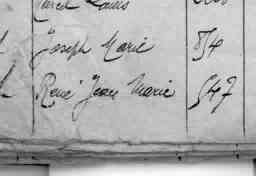 Louis
Joseph Marie 854
René Jean Marie 547